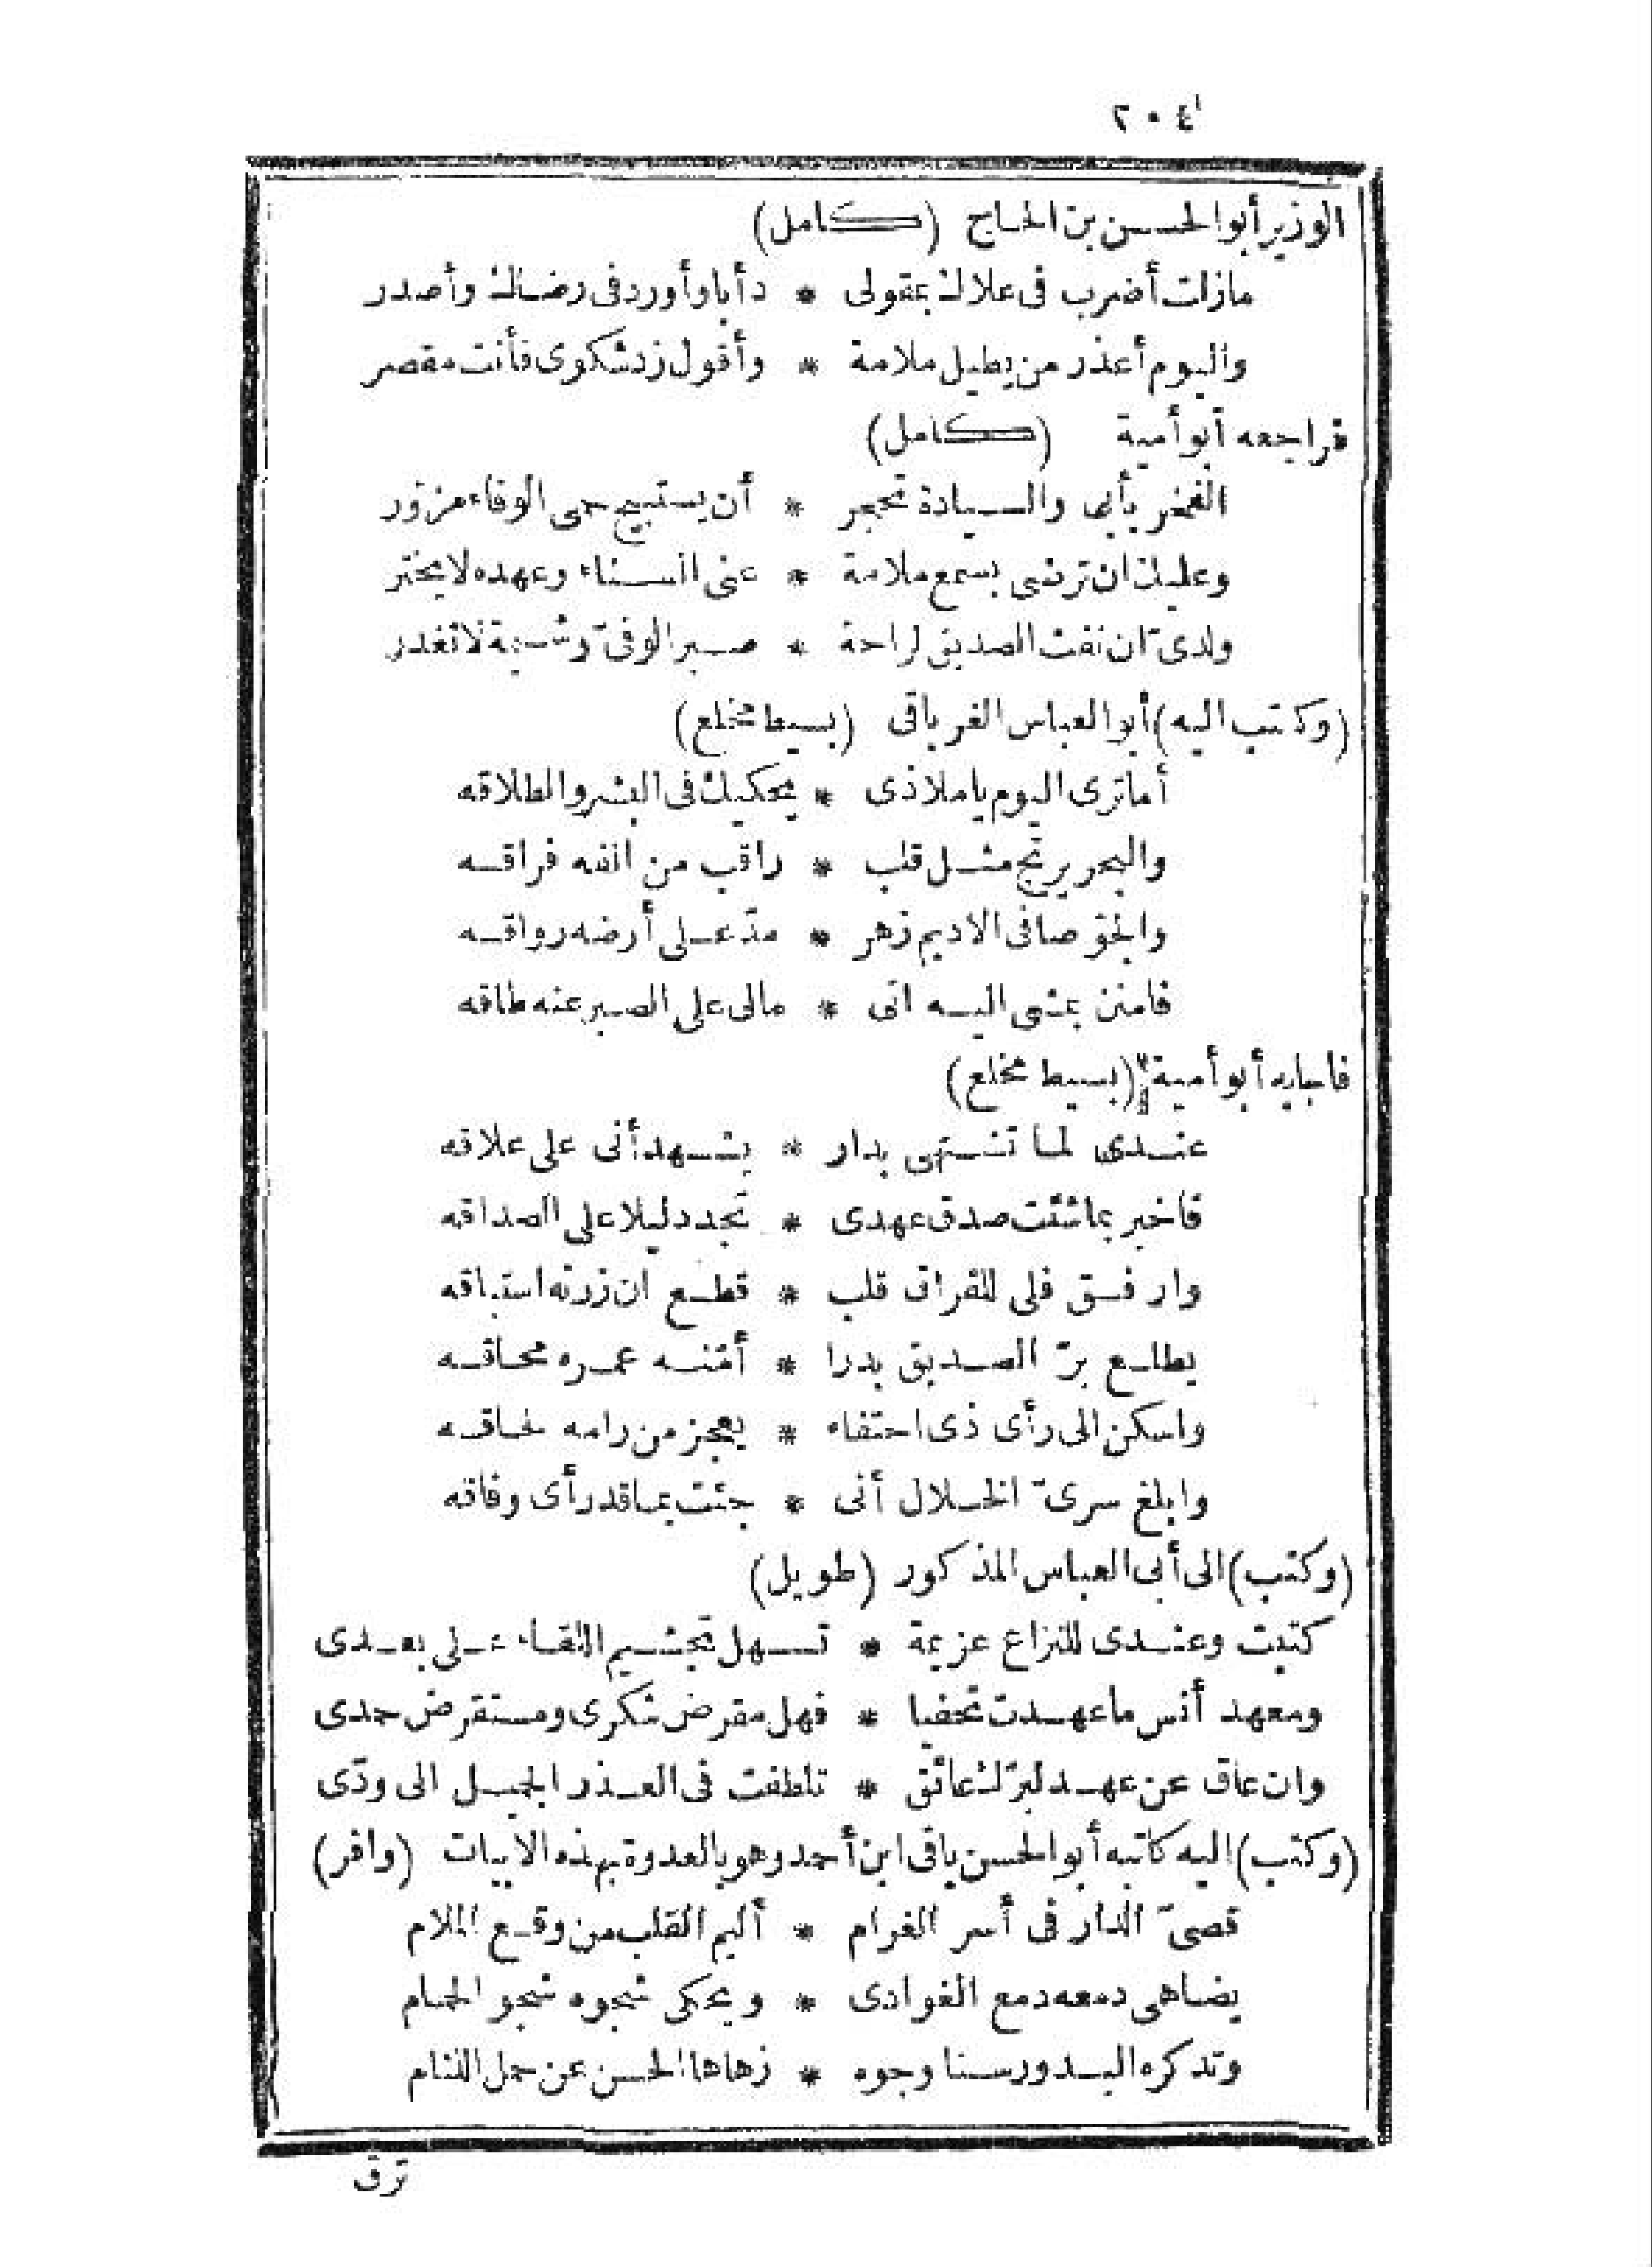 ٢٠٤
الوزير أبوالحسن بن الحاج (كامل)
مازلت أضرب فى علاك بمقولى * دأبا وأورد فى رضاك وأصدر
واليوم أعذر من يطيل ملامة * وأقول زد شكوى فأنت مقصر
فراجعه أبوأمية (كامل)
الفخر يأبى والسيادة تحجر * أن يستبيح حمى الوفاء مزور
وعليك ان ترضى بسمع ملامة * عنى السناء وعهده لايختر
ولدىّ ان نفث الصديق لراحة * صبر الوفىّ وشيمة لاتغدر
(وكتب اليه) أبوالعباس الغرباقى (بسيط مخلع)
أماترى اليوم ياملاذى * يحكيك فى البشر والطلاقه
والبحر يرتج مثل قلب * راقب من الفه فراقه
والجوّ صافى الاديم زهر * مدّ على أرضه رواقه
فامنن بمشى اليه انى * مالى على الصبر عنه طاقه
فأجابه أبوأمية (بسيط مخلع)
عندى لما تشتهى بدار * يشهد أنى على علاقه
فاخبر بماشئت صدق عهدى * تجد دليلا على الصداقه
وارفق فلى للفراق قلب * قطع ان زرته استباقه
يطلع برّ الصديق بدرا * أمّنه عمره محاقه
واسكن الى رأى ذى احتفاء * يعجز من رامه لحاقه
وابلغ سرىّ الخلال أنى * جئت بماقد رأى وفاقه
(وكتب) الى أبى العباس المذكور (طويل)
كتبت وعندى للنزاع عزيمة * تسهل تجشيم اللقاء على بعدى
ومعهد أنس ماعهدت تحفيا * فهل مقرض شكرى ومستقرض حمدى
وان عاق عن عهد لبرّك عائق * تلطفت فى العذر الجميل الى ودّى
(وكتب) اليه كاتبه أبوالحسن باقى ابن أحمد وهو بالعدوة بهذه الابيات (وافر)
قصىّ الدار فى أسر الغرام * أليم القلب من وقع الملام
يضاهى دمعه دمع الغوادى * ويحكى شجوه شجو الحمام
وتدكره البدور سنا وجوه * زهاها الحسن عن حمل اللثام
ترق